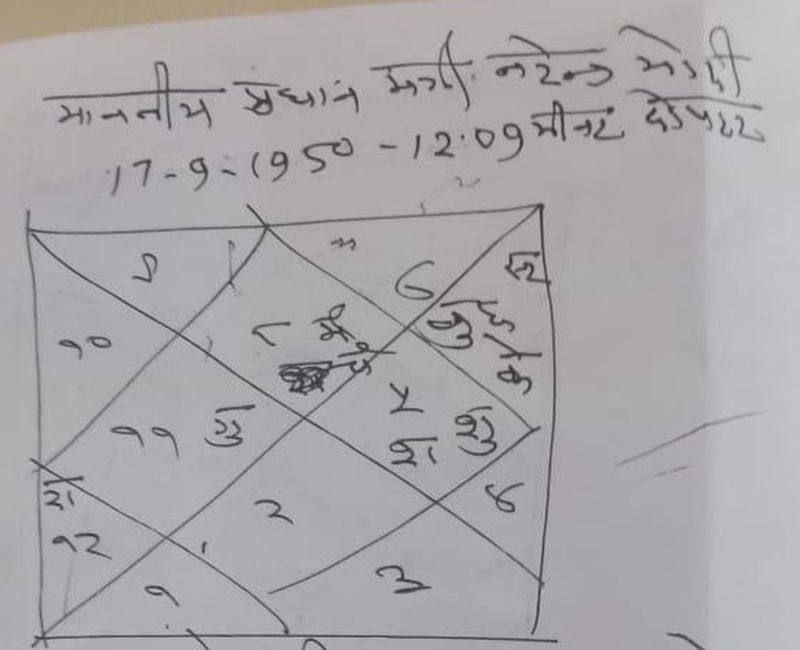 माननीय प्रधान मंत्री नरेन्द्र मोदी
17-9-1950 - 12:09 मीनट दोपहर
९
७
सू
१०
८
मं
चं
के
११
गु
५
शु
श
रा
१२
२
४
३
१